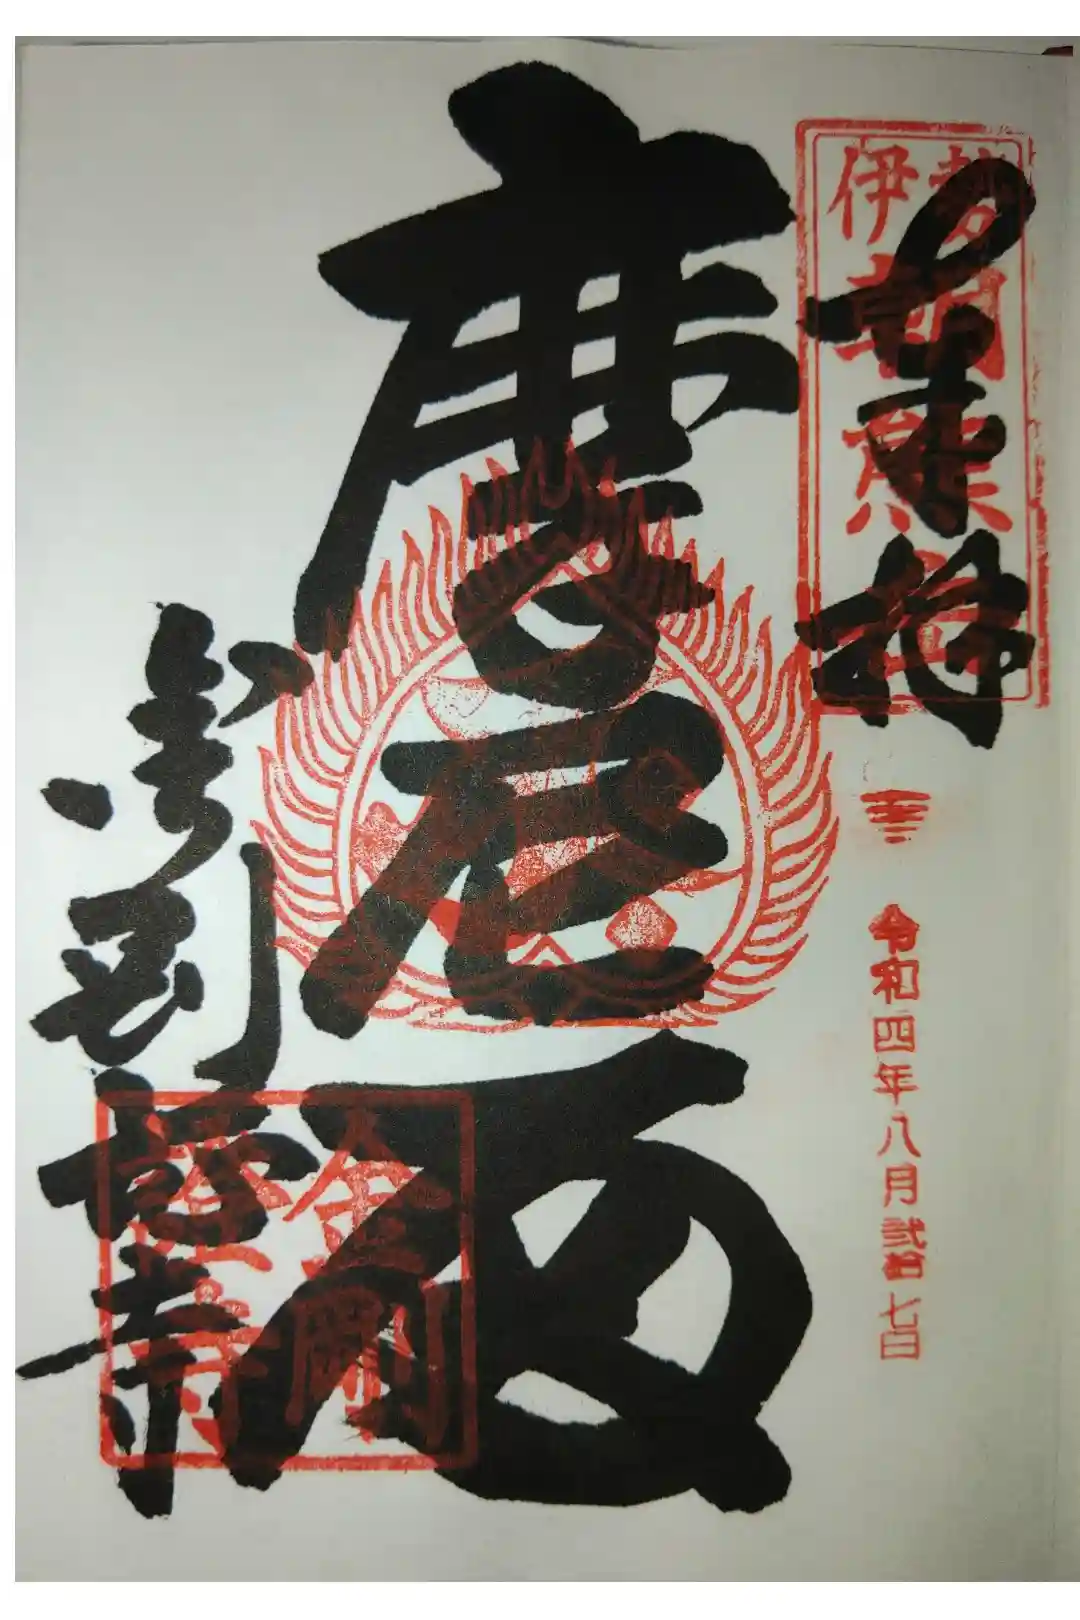 奉拝
伊勢
朝熊
令和四年八月弐拾七日
摩尼
金剛證寺
金剛
證寺